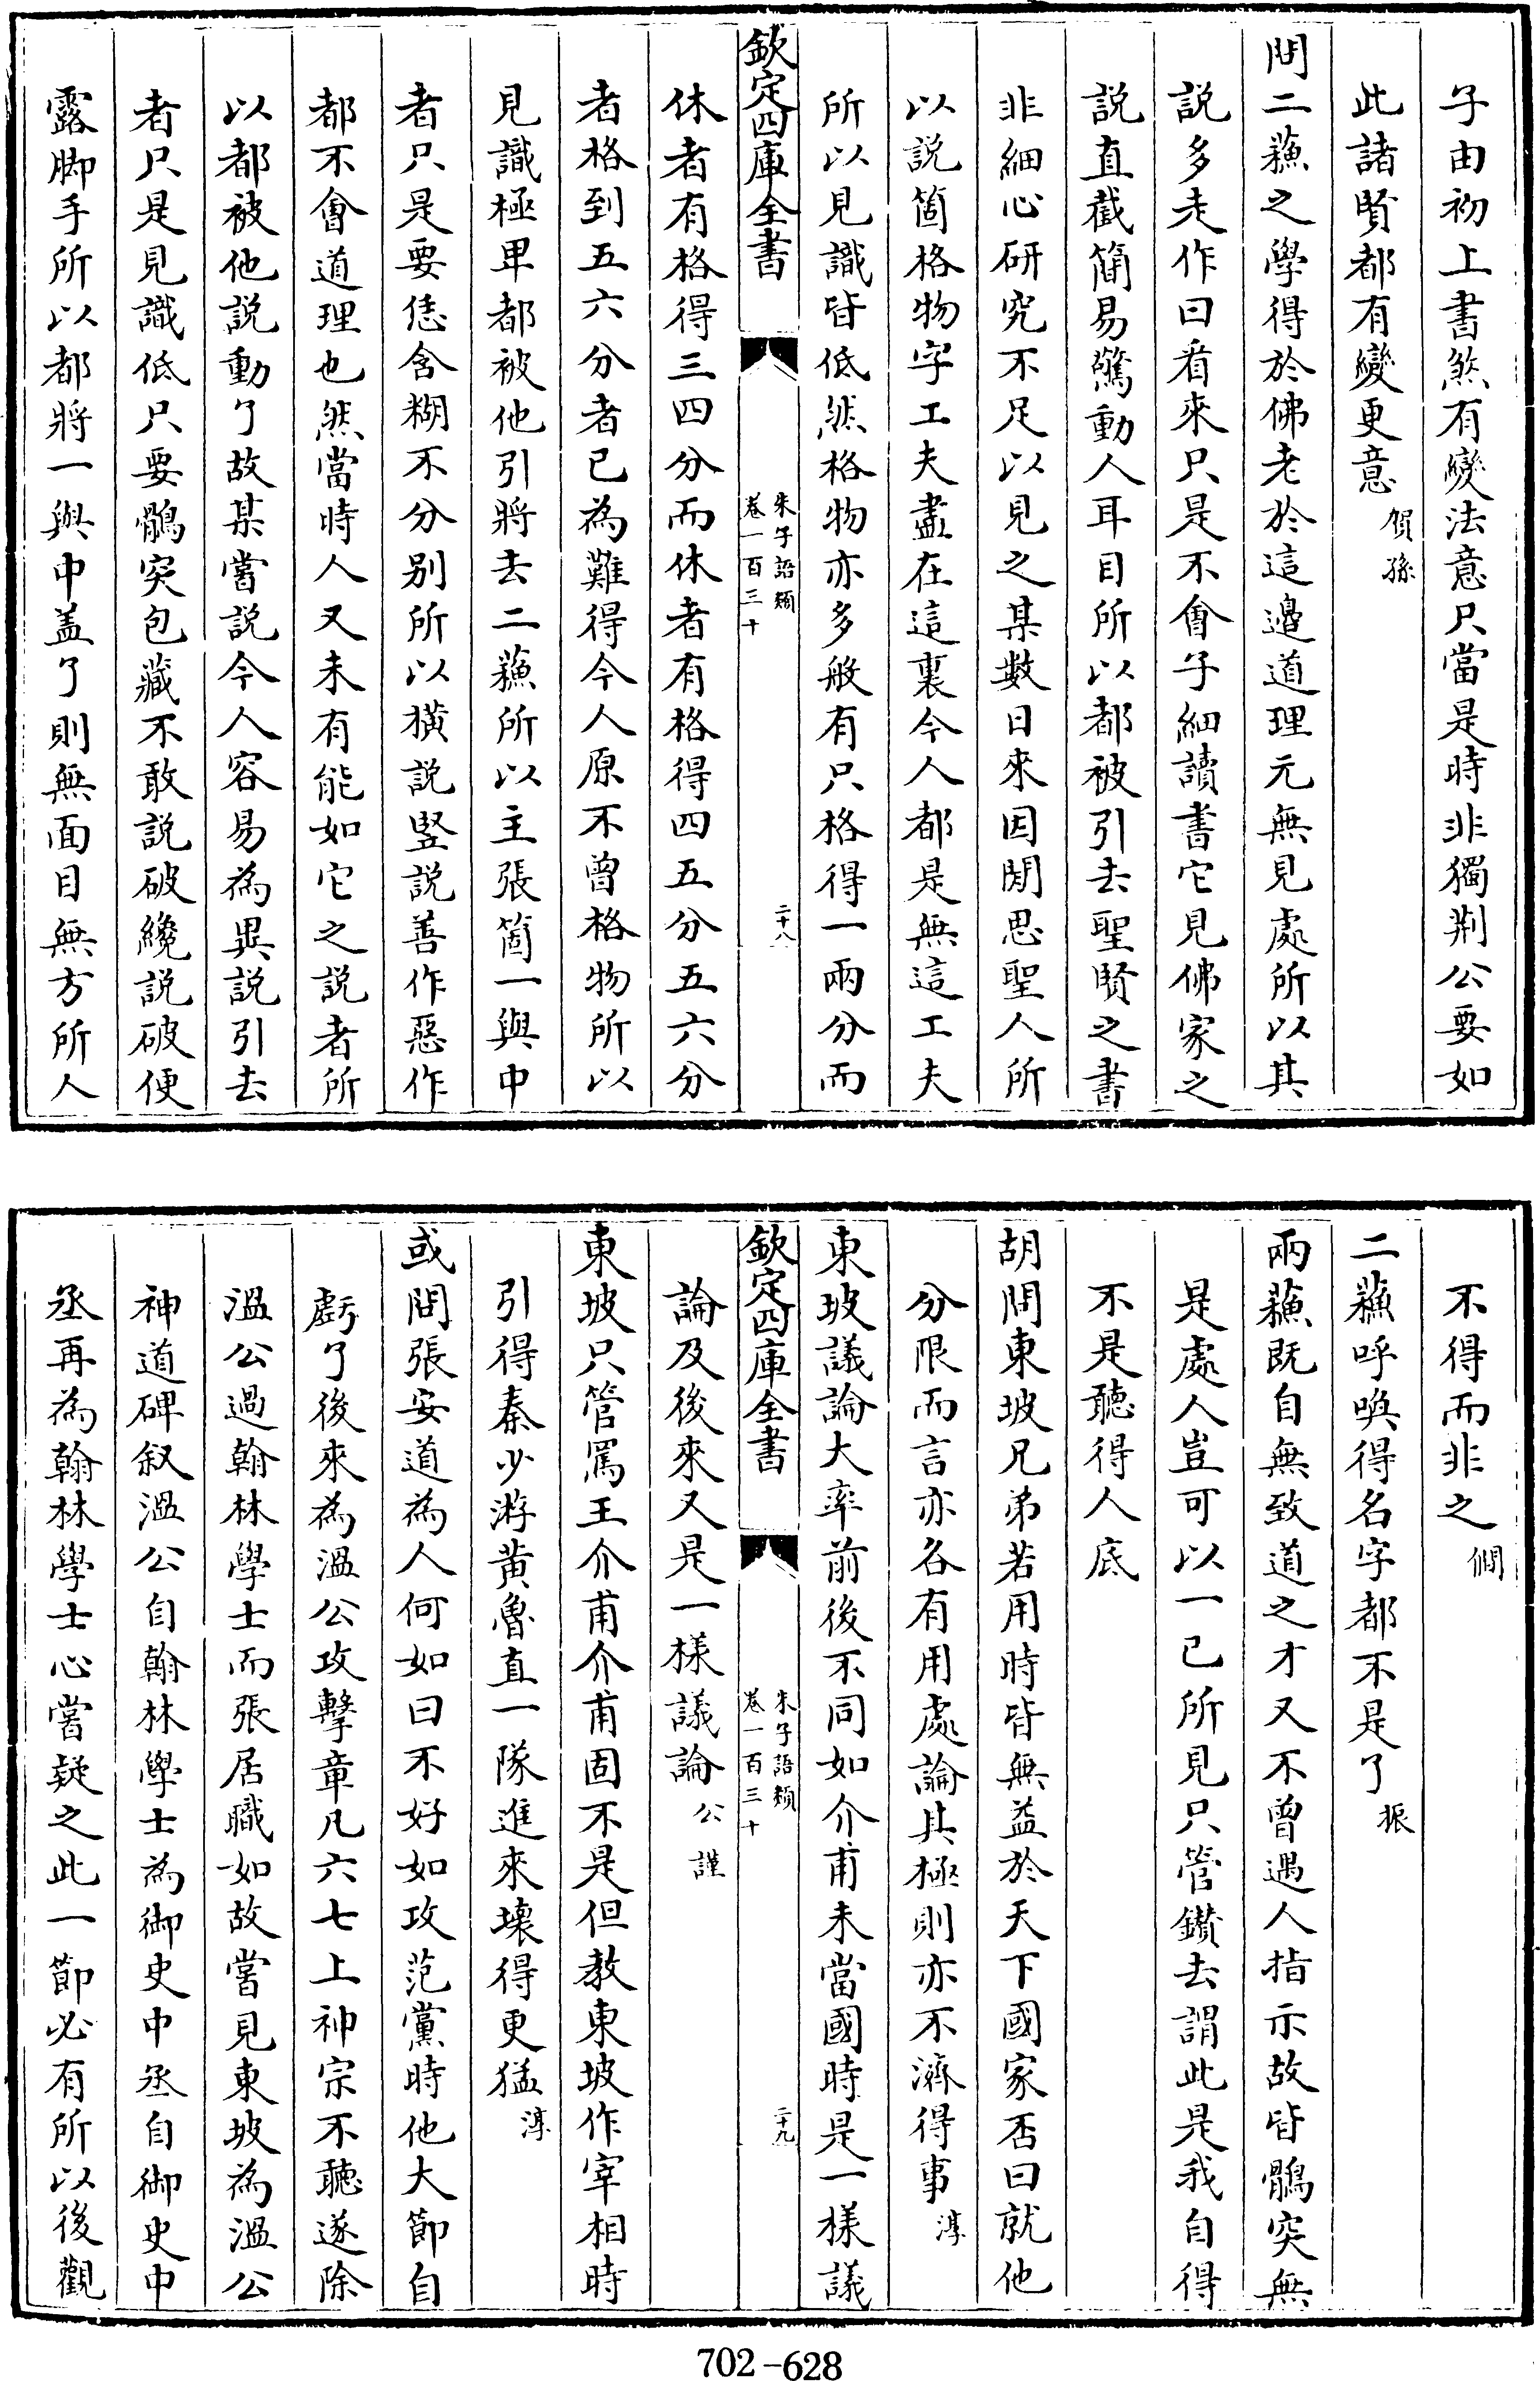 子由初上書煞有變法意只當是時非獨荆公要如
此諸賢都有變更意賀孫
問二蘓之學得於佛老於這邉道理元無見處所以其
説多走作曰看來只是不會子細讀書它見佛家之
説直截簡易驚動人耳目所以都被引去聖賢之書
非細心研究不足以見之某數日來因閒思聖人所
以説箇格物字工夫盡在這裏今人都是無這工夫
所以見識皆低然格物亦多般有只格得一兩分而
欽定四庫全書
朱子語類
卷一百三十
二十八
休者有格得三四分而休者有格得四五分五六分
者格到五六分者已為難得今人原不曾格物所以
見識極卑都被他引將去二蘓所以主張箇一與中
者只是要恁含糊不分别所以横説竪説善作惡作
都不會道理也然當時人又未有能如它之説者所
以都被他説動了故某嘗説今人容易為異説引去
者只是見識低只要鶻突包藏不敢説破纔説破便
露脚手所以都將一與中盖了則無面目無方所人
不得而非之僩
二蘓呼喚得名字都不是了振
兩蘓既自無致道之才又不曾遇人指示故皆鶻突無
是處人豈可以一已所見只管鑚去謂此是我自得
不是聽得人底
胡問東坡兄弟若用時皆無益於天下國家否曰就他
分限而言亦各有用處論其極則亦不濟得事淳
東坡議論大率前後不同如介甫未當國時是一様議
欽定四庫全書
朱子語類
卷一百三十
二十九
論及後來又是一様議論公謹
東坡只管罵王介甫介甫固不是但教東坡作宰相時
引得秦少游黄魯直一隊進來壊得更猛淳
或問張安道為人何如曰不好如攻范黨時他大節自
虧了後來為溫公攻擊章凡六七上神宗不聽遂除
溫公過翰林學士而張居職如故嘗見東坡為溫公
神道碑叙溫公自翰林學士為御史中丞自御史中
丞再為翰林學士心嘗疑之此一節必有所以後觀
702-628